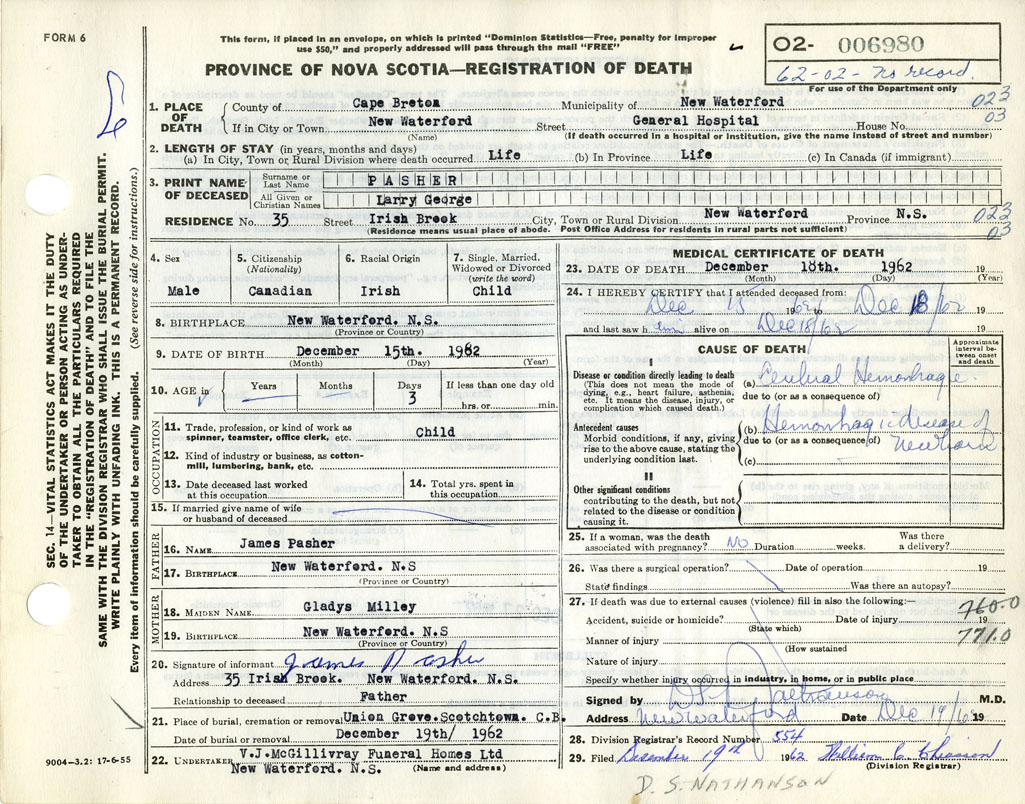 FORM 6
This form, if placed in an envelope, on which is printed "Dominion Statistics—Free, penalty for improper
use $50," and properly addressed will pass through the mail "FREE"
PROVINCE OF NOVA SCOTIA—REGISTRATION OF DEATH
02- 006980
62-02- no record.
For use of the Department only
023
03
1. PLACE OF DEATH
County of Cape Breton Municipality of New Waterford
If in City or Town New Waterford Street General Hospital House No.
(Name) (If death occurred in a hospital or institution, give the name instead of street and number)
2. LENGTH OF STAY (in years, months and days)
(a) In City, Town or Rural Division where death occurred Life (b) In Province Life (c) In Canada (if immigrant)
3. PRINT NAME OF DECEASED
Surname or Last Name PASHER
All Given or Christian Names Larry George
RESIDENCE No. 35 Street Irish Brook City, Town or Rural Division New Waterford Province N.S.
(Residence means usual place of abode. Post Office Address for residents in rural parts not sufficient)
023
03
4. Sex
Male
5. Citizenship (Nationality)
Canadian
6. Racial Origin
Irish
7. Single, Married, Widowed or Divorced (write the word)
Child
8. BIRTHPLACE New Waterford. N.S.
(Province or Country)
9. DATE OF BIRTH December 15th. 1962
(Month) (Day) (Year)
10. AGE in Years Months Days If less than one day old
3 hrs. or min.
OCCUPATION
11. Trade, profession, or kind of work as
spinner, teamster, office clerk, etc. Child
12. Kind of industry or business, as cotton-
mill, lumbering, bank, etc.
13. Date deceased last worked
at this occupation
14. Total yrs. spent in
this occupation
15. If married give name of wife
or husband of deceased
FATHER
16. NAME James Pasher
17. BIRTHPLACE New Waterford. N.S
(Province or Country)
MOTHER
18. MAIDEN NAME Gladys Milley
19. BIRTHPLACE New Waterford. N.S
(Province or Country)
20. Signature of informant James Pasher
Address 35 Irish Brook. New Waterford. N.S.
Relationship to deceased Father
21. Place of burial, cremation or removal Union Grove.Scotchtown. C.B.
Date of burial or removal December 19th/ 1962
22. UNDERTAKER V.J.McGillivray Funeral Homes Ltd
New Waterford. N.S. (Name and address)
MEDICAL CERTIFICATE OF DEATH
23. DATE OF DEATH December 18th. 1962 19
(Month) (Day) (Year)
24. I HEREBY CERTIFY that I attended deceased from:
Dec 15 1962 to Dec 18/62 19
and last saw h im alive on Dec 18/62 19
CAUSE OF DEATH
Approximate interval be-tween onset and death
I
Disease or condition directly leading to death
(This does not mean the mode of
dying, e.g., heart failure, asthenia,
etc. It means the disease, injury, or
complication which caused death.)
(a) Cerebral Hemorrhage
due to (or as a consequence of)
Antecedent causes
Morbid conditions, if any, giving
rise to the above cause, stating the
underlying condition last.
(b) Hemorrhagic disease of
due to (or as a consequence of) Newborn
(c)
II
Other significant conditions
contributing to the death, but not
related to the disease or condition
causing it.
25. If a woman, was the death
associated with pregnancy? NO Duration weeks. Was there
a delivery?
26. Was there a surgical operation? Date of operation 19
State findings Was there an autopsy?
27. If death was due to external causes (violence) fill in also the following:—
760.0
Accident, suicide or homicide? Date of injury 19
(State which)
771.0
Manner of injury
(How sustained
Nature of injury
Specify whether injury occurred in industry, in home, or in public place
Signed by D S Nathanson M.D.
Address New Waterford Date Dec 19/62 19
28. Division Registrar's Record Number 554
29. Filed December 19th 1962 William C. Chiasson
(Division Registrar)
D. S. NATHANSON
9004—3.2: 17-6-55
SEC. 14—VITAL STATISTICS ACT MAKES IT THE DUTY
OF THE UNDERTAKER OR PERSON ACTING AS UNDER-
TAKER TO OBTAIN ALL THE PARTICULARS REQUIRED
IN THE "REGISTRATION OF DEATH" AND TO FILE THE
SAME WITH THE DIVISION REGISTRAR WHO SHALL ISSUE THE BURIAL PERMIT.
WRITE PLAINLY WITH UNFADING INK. THIS IS A PERMANENT RECORD.
Every item of information should be carefully supplied. (See reverse side for instructions.)